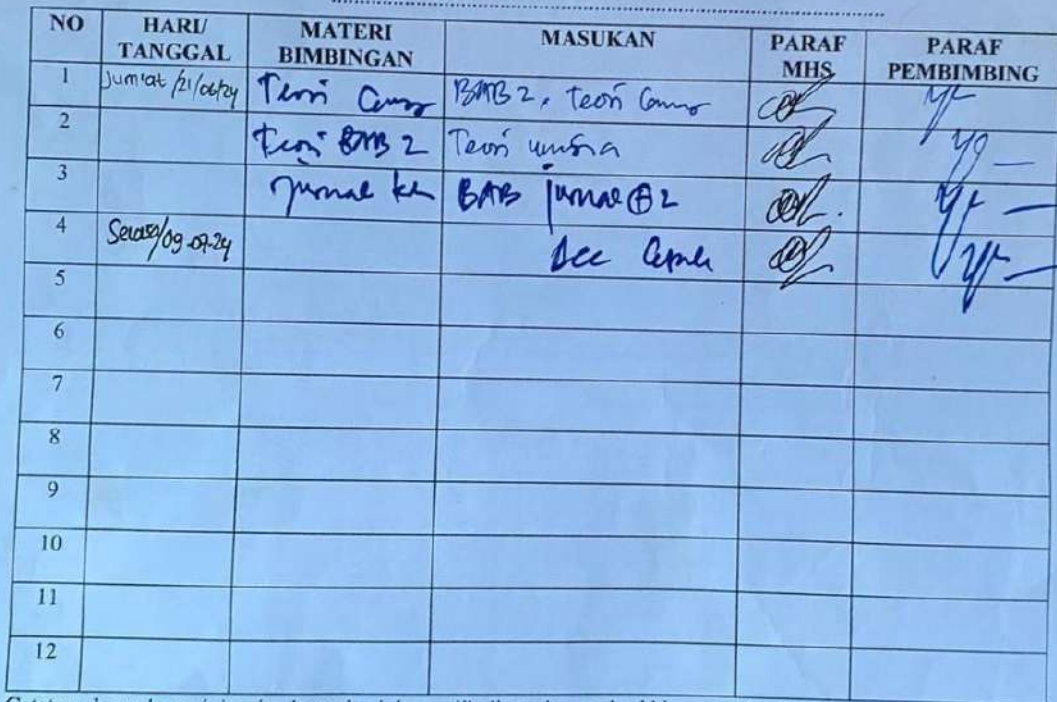 NO HARI/ TANGGAL MATERI BIMBINGAN MASUKAN PARAF MHS PARAF PEMBIMBING
1 Jum'at /21/06/24 Teori BAB 2, Teori
2 Teori BAB 2 Teori
3 Jurnal BAB jurnal 2
4 Selasa/09-07-24 Acc
5
6
7
8
9
10
11
12